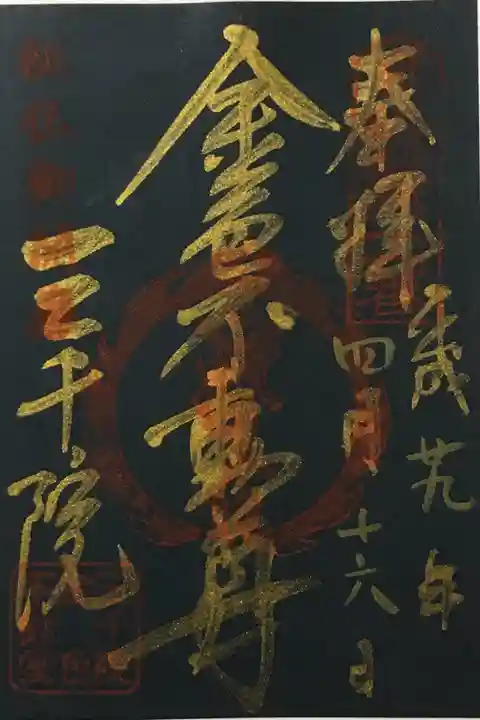 奉拝
平成廿九年
四月十六日
金色不動尊
三千院